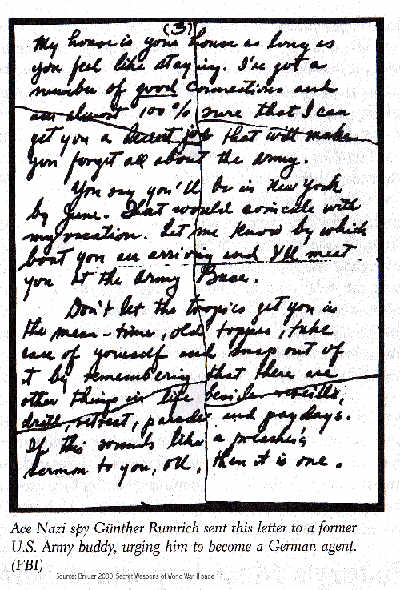 (3)
My house is your house as long as
you feel like staying. I've got a
number of good connections and
am almost 100% sure that I can
get you a decent job that will make
you forget all about the army.
You say you'll be in New York
by June. That would coincide with
my vacation. Let me know by which
boat you are arriving and I'll meet
you at the Army Base.
Don't let the tropics get you in
the mean-time, old topper, take
care of yourself and snap out of
it by remembering that there are
other things in life beside reveille,
drill, retreat, parades and paydays.
If this sounds like a preacher's
sermon to you, O.K., then it is one.
Ace Nazi spy Günther Rumrich sent this letter to a former
U.S. Army buddy, urging him to become a German agent.
(FBI)
Source: Breuer 2000 Secret Weapons of World War II page